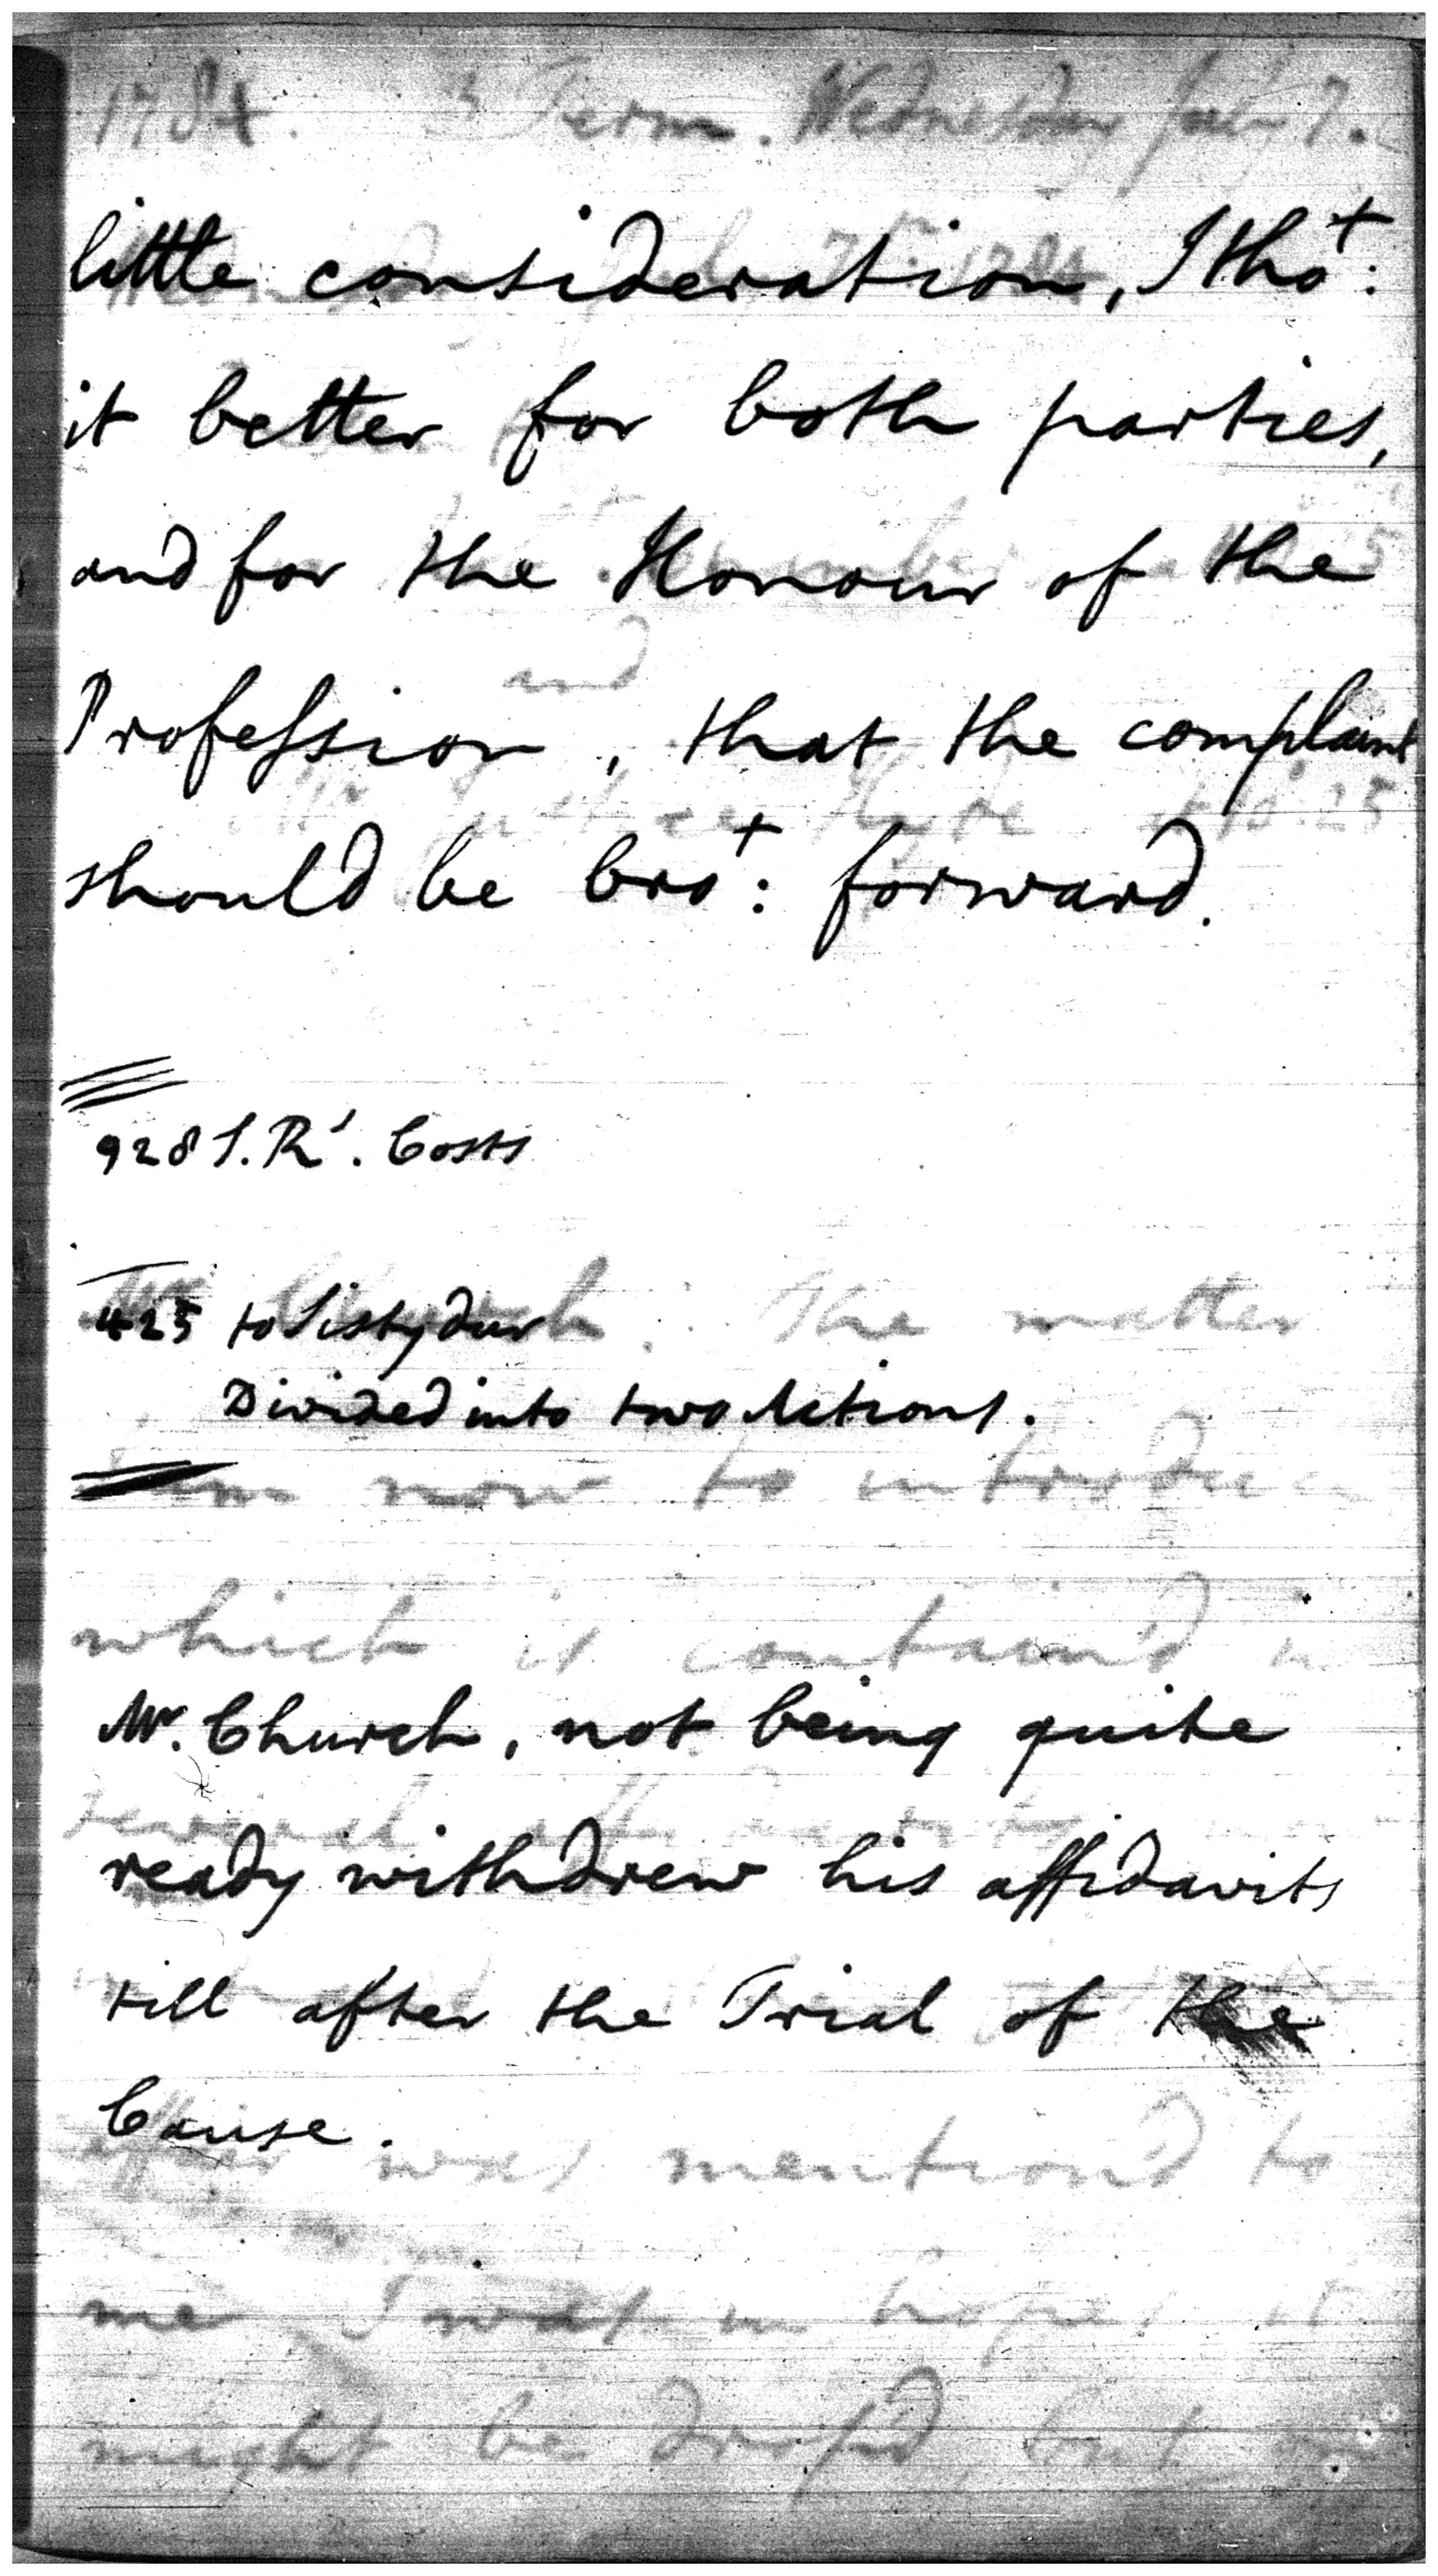 1784. 3 Term. Wednesday July 7.
little consideration, I tho.t:
it better for both parties,
and for the Honour of the
Profession, that the complaint
should be bro.t: forward.
928 S. Rs. Costs
425 to Sistydur
Divided into two Actions.
Mr. Church, not being quite
ready withdrew his affidavits
till after the Trial of the
Cause.